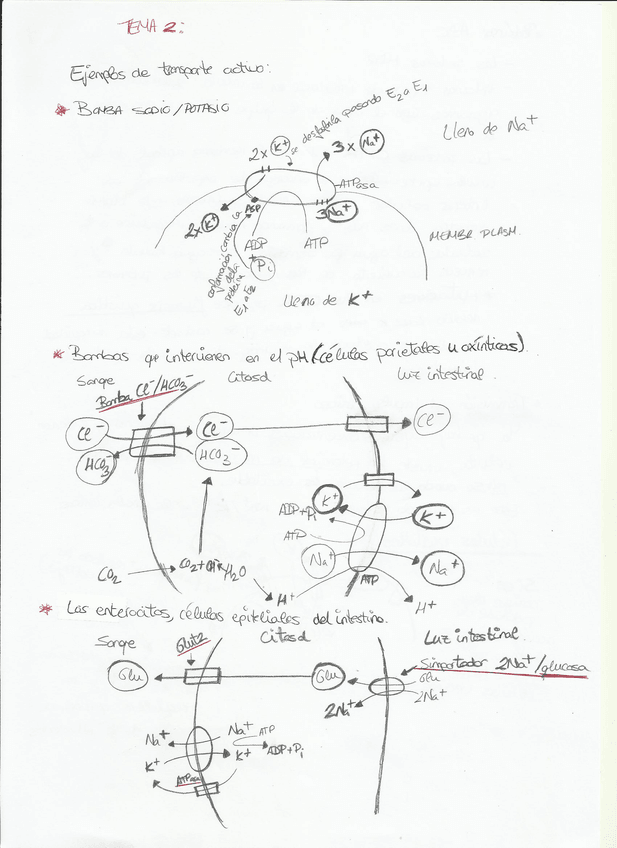 TEMA 2:
Ejemplos de transporte activo:
* BOMBA SODIO/POTASIO
2x K+ se desfosforila pasando E2 a E1
3x Na+
Lleno de Na+
ATPasa
2x K+
ASP
3 Na+
ADP
+
Pi
ATP
MEMBR PLASM.
conformación cambia la
de la
proteína
E1 a E2
Lleno de K+
* Bombas que intervienen en el pH (células parietales u oxínticas).
Sangre
Citosol
Luz intestinal.
Bomba Cl-/HCO3-
Cl-
Cl-
Cl-
HCO3-
HCO3-
K+
ADP+Pi
K+
ATP
Na+
Na+
CO2
CO2 + H2O
ATP
H+
H+
* Las enterocitos, células epiteliales del intestino.
Sangre
Glut2
Citosol
Luz intestinal.
Simportador 2Na+/glucosa
Glu
Glu
Glu
2Na+
2Na+
Na+
Na+
ATP
K+
K+
ADP+Pi
ATPasa